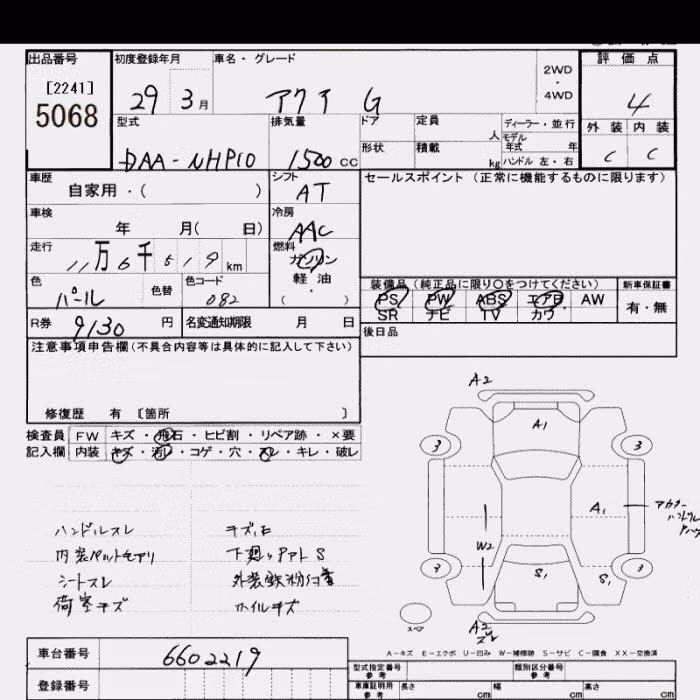 出品番号
[2241]
5068
初度登録年月
29 3月
車名・グレード
アクア G
2WD
・
4WD
評価点
4
外装 内装
C C
型式
DAA-NHP10
排気量
1500 CC
ドア
形状
定員 人
積載 kg
ディーラー・並行
モデル
年式 年
ハンドル 左・右
車歴
自家用・( )
シフト
AT
セールスポイント (正常に機能するものに限ります)
車検
年 月( 日)
冷房
AAC
走行
11万6千519km
燃料
ガソリン
軽油
・
( )
色
パール
色替
色コード
082
R券 9130 円
名変通知期限 月 日
装備品 (純正品に限り○をつけてください)
PS PW ABS エアB AW
SR ナビ TV カワ
新車保証書
有・無
後日品
注意事項申告欄(不具合内容等は具体的に記入して下さい)
修復歴 有 〔箇所 〕
検査員
記入欄
FW キズ・飛石・ヒビ割・リペア跡・×要
内装 キズ・汚レ・コゲ・穴・スレ・キレ・破レ
ハンドルスレ
シートスレ
荷室キズ
下廻り S
ホイルキズ
A2
A1
3
3
A1
W2
3
3
S1
S1
スペア
A2
A-キズ E-エクボ U-凹み W-補修跡 S-サビ C-腐食 XX-交換済
車台番号
6602219
登録番号
型式指定番号
参考
類別区分番号
参考
車庫証明用
参考
長さ cm
幅 cm
高さ cm